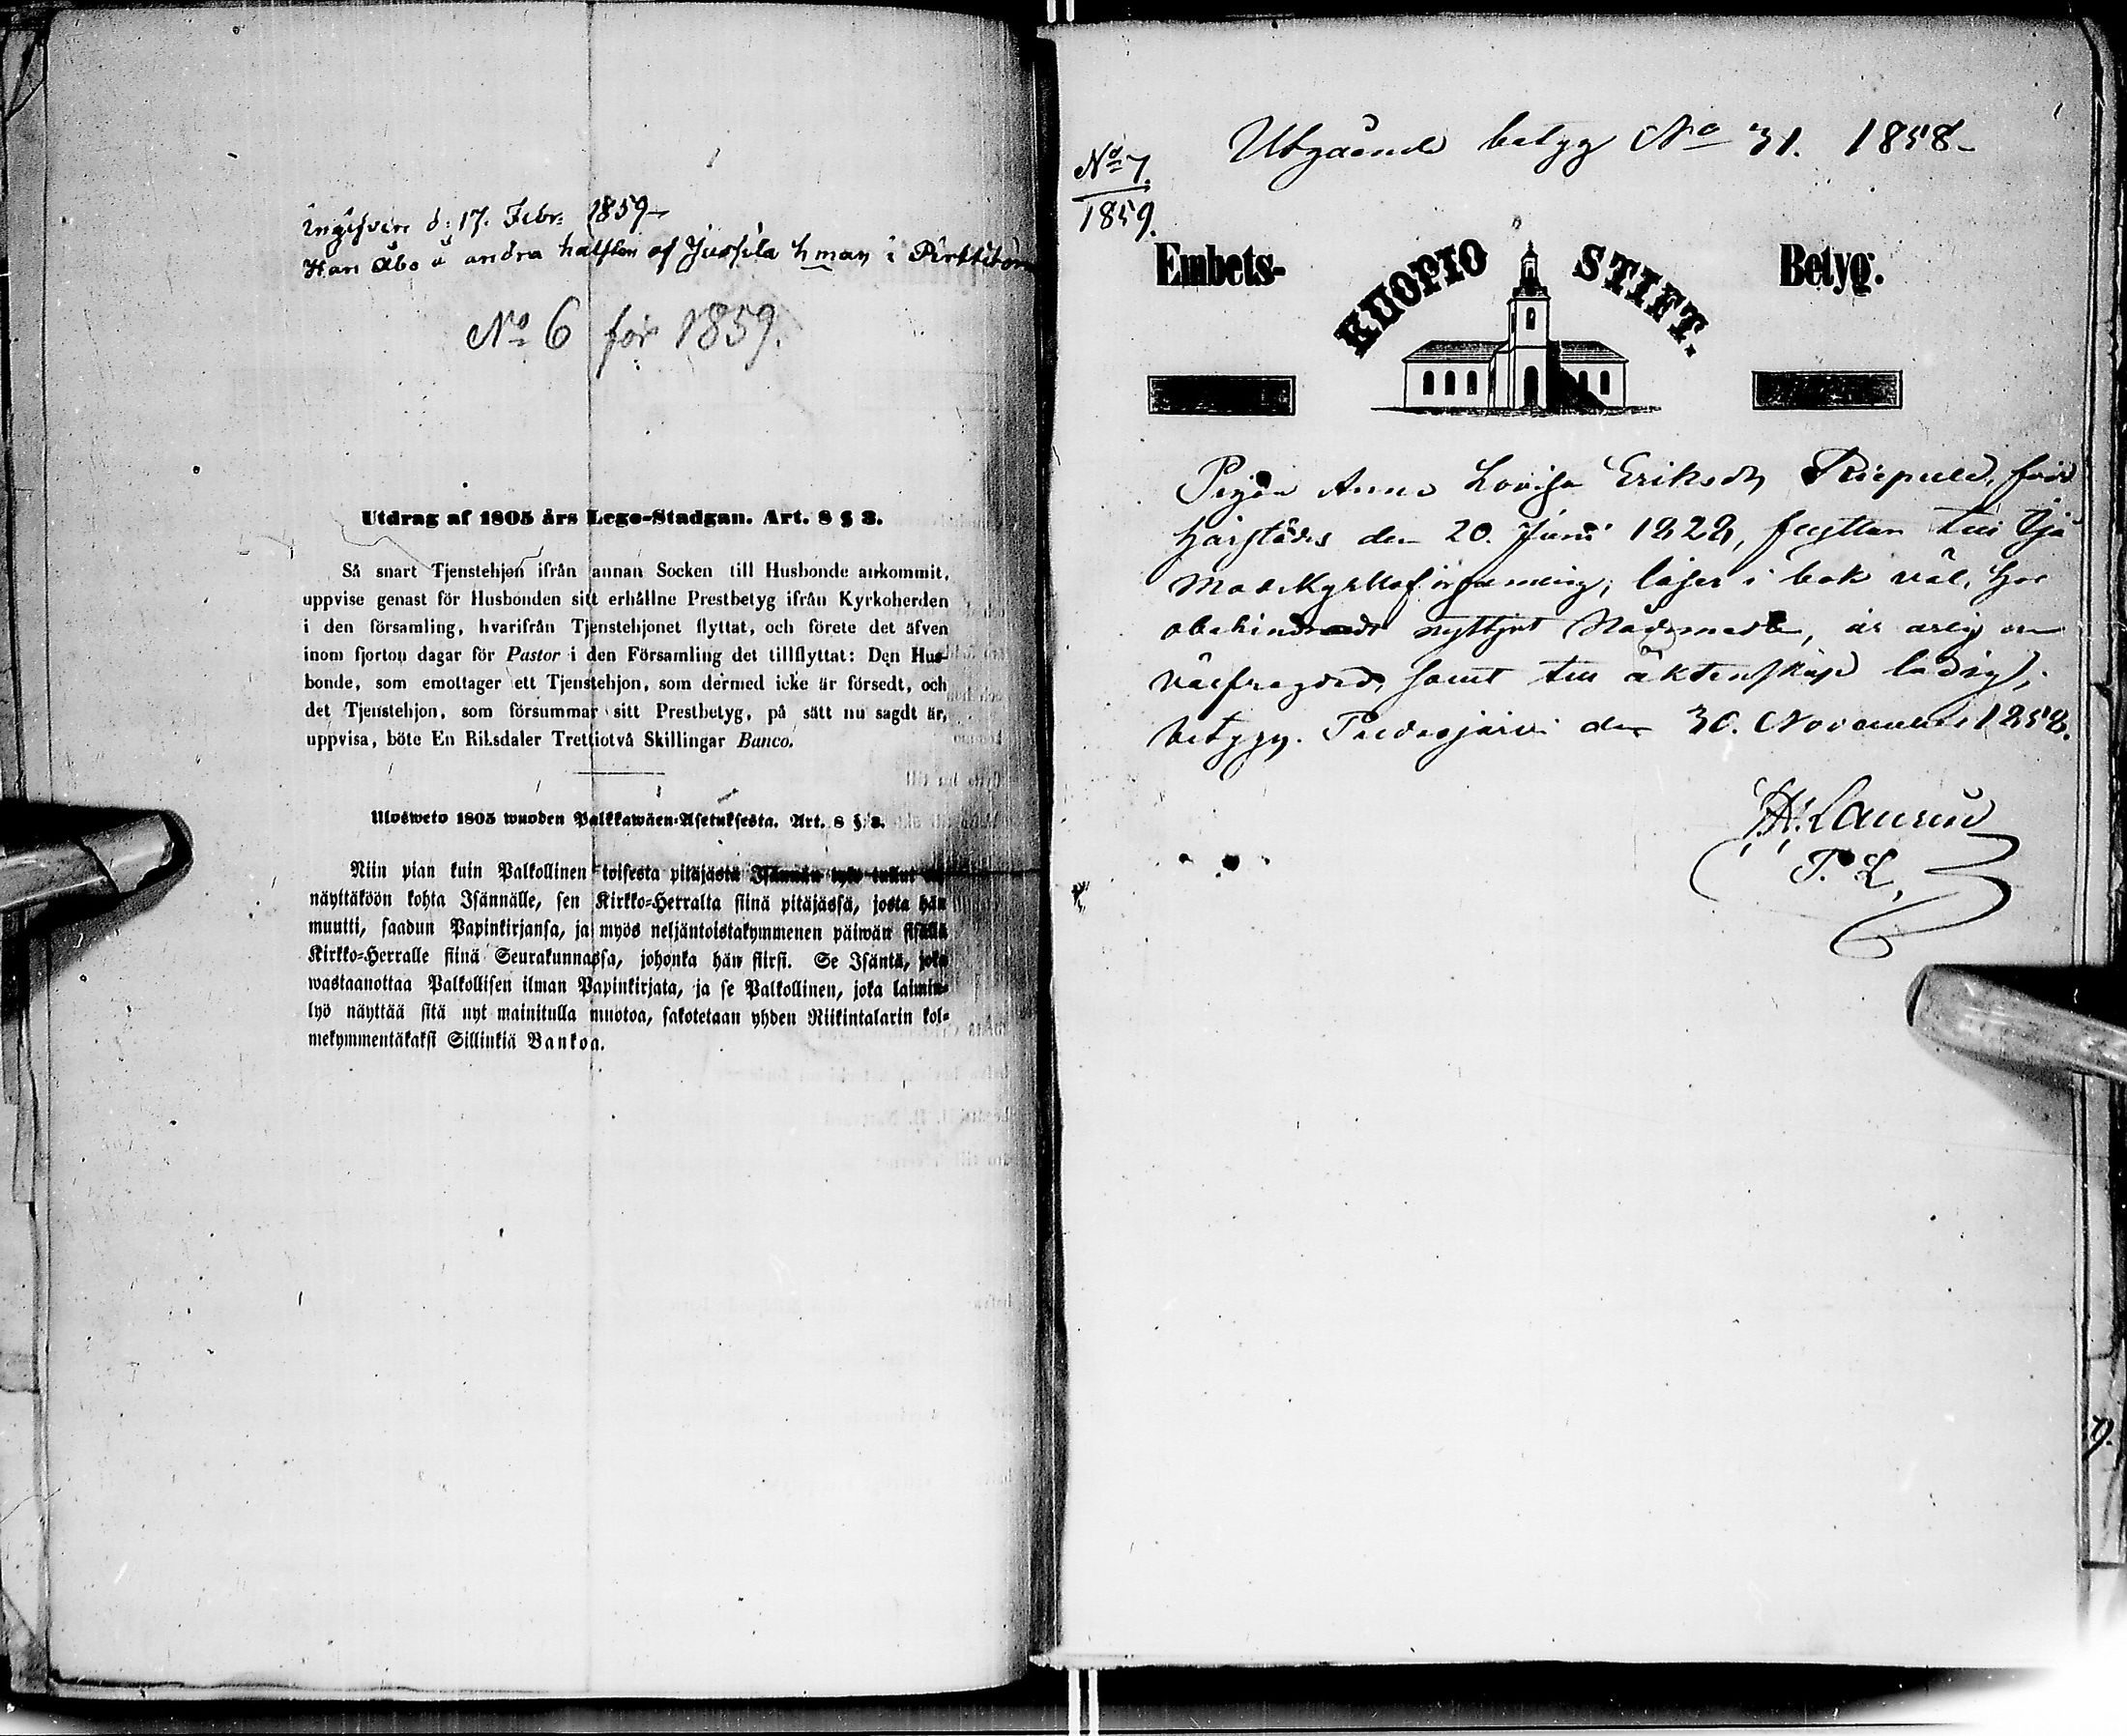 Ingifven d. 17. Febr. 1859
Han Åbo å andra halften af Jussila hman i
No 6 för 1859.
Utdrag af 1805 års Lego-Stadgan. Art. 8 § 3.
Så snart Tjenstehjon ifrån annan Socken till Husbonde ankommit,
uppvise genast för Husbonden sitt erhållne Prestbetyg ifrån Kyrkoherden
i den församling, hvarifrån Tjenstehjonet flyttat, och förete det äfven
inom fjorton dagar för Pastor i den Församling det tillflyttat: Den Hus-
bonde, som emottager ett Tjenstehjon, som dermed icke är försedt, och
det Tjenstehjon, som försummar sitt Prestbetyg, på sätt nu sagdt är,
uppvisa, böte En Riksdaler Trettiotvå Skillingar Banco.
Ulosweto 1805 wuoden Palkkawäen-Asetuksesta. Art. 8 § 3.
Niin pian kuin Palkollinen toisesta pitäjästä Isännän tykö tullut on
näyttäköön kohta Isännälle, sen Kirkko-Herralta siinä pitäjässä, josta hän
muutti, saadun Papinkirjansa, ja myös neljäntoistakymmenen päiwän sisällä
Kirkko-Herralle siinä Seurakunnassa, johonka hän siirsi. Se Isäntä, joka
wastaanottaa Palkollisen ilman Papinkirjata, ja se Palkollinen, joka laimin-
lyö näyttää sitä nyt mainitulla muotoa, sakotetaan yhden Riikintalarin kol-
mekymmentäkaksi Sillinkiä Bankoa.
Utgående betyg No 31. 1858
No 7.
1859.
Embets- KUOPIO STIFT. Betyg.
Pigan Anna Lovisa Eriksdr född
härstädes den 20. Juni 1828, flyttar till
Moderkyrkoförsamling; läser i bok väl, har
obehindradt nyttjat Nådemedlen, är ärlig
välfrägdad, samt till äktenskap ledig;
betygar. Pudasjärvi den 30. November 1858.